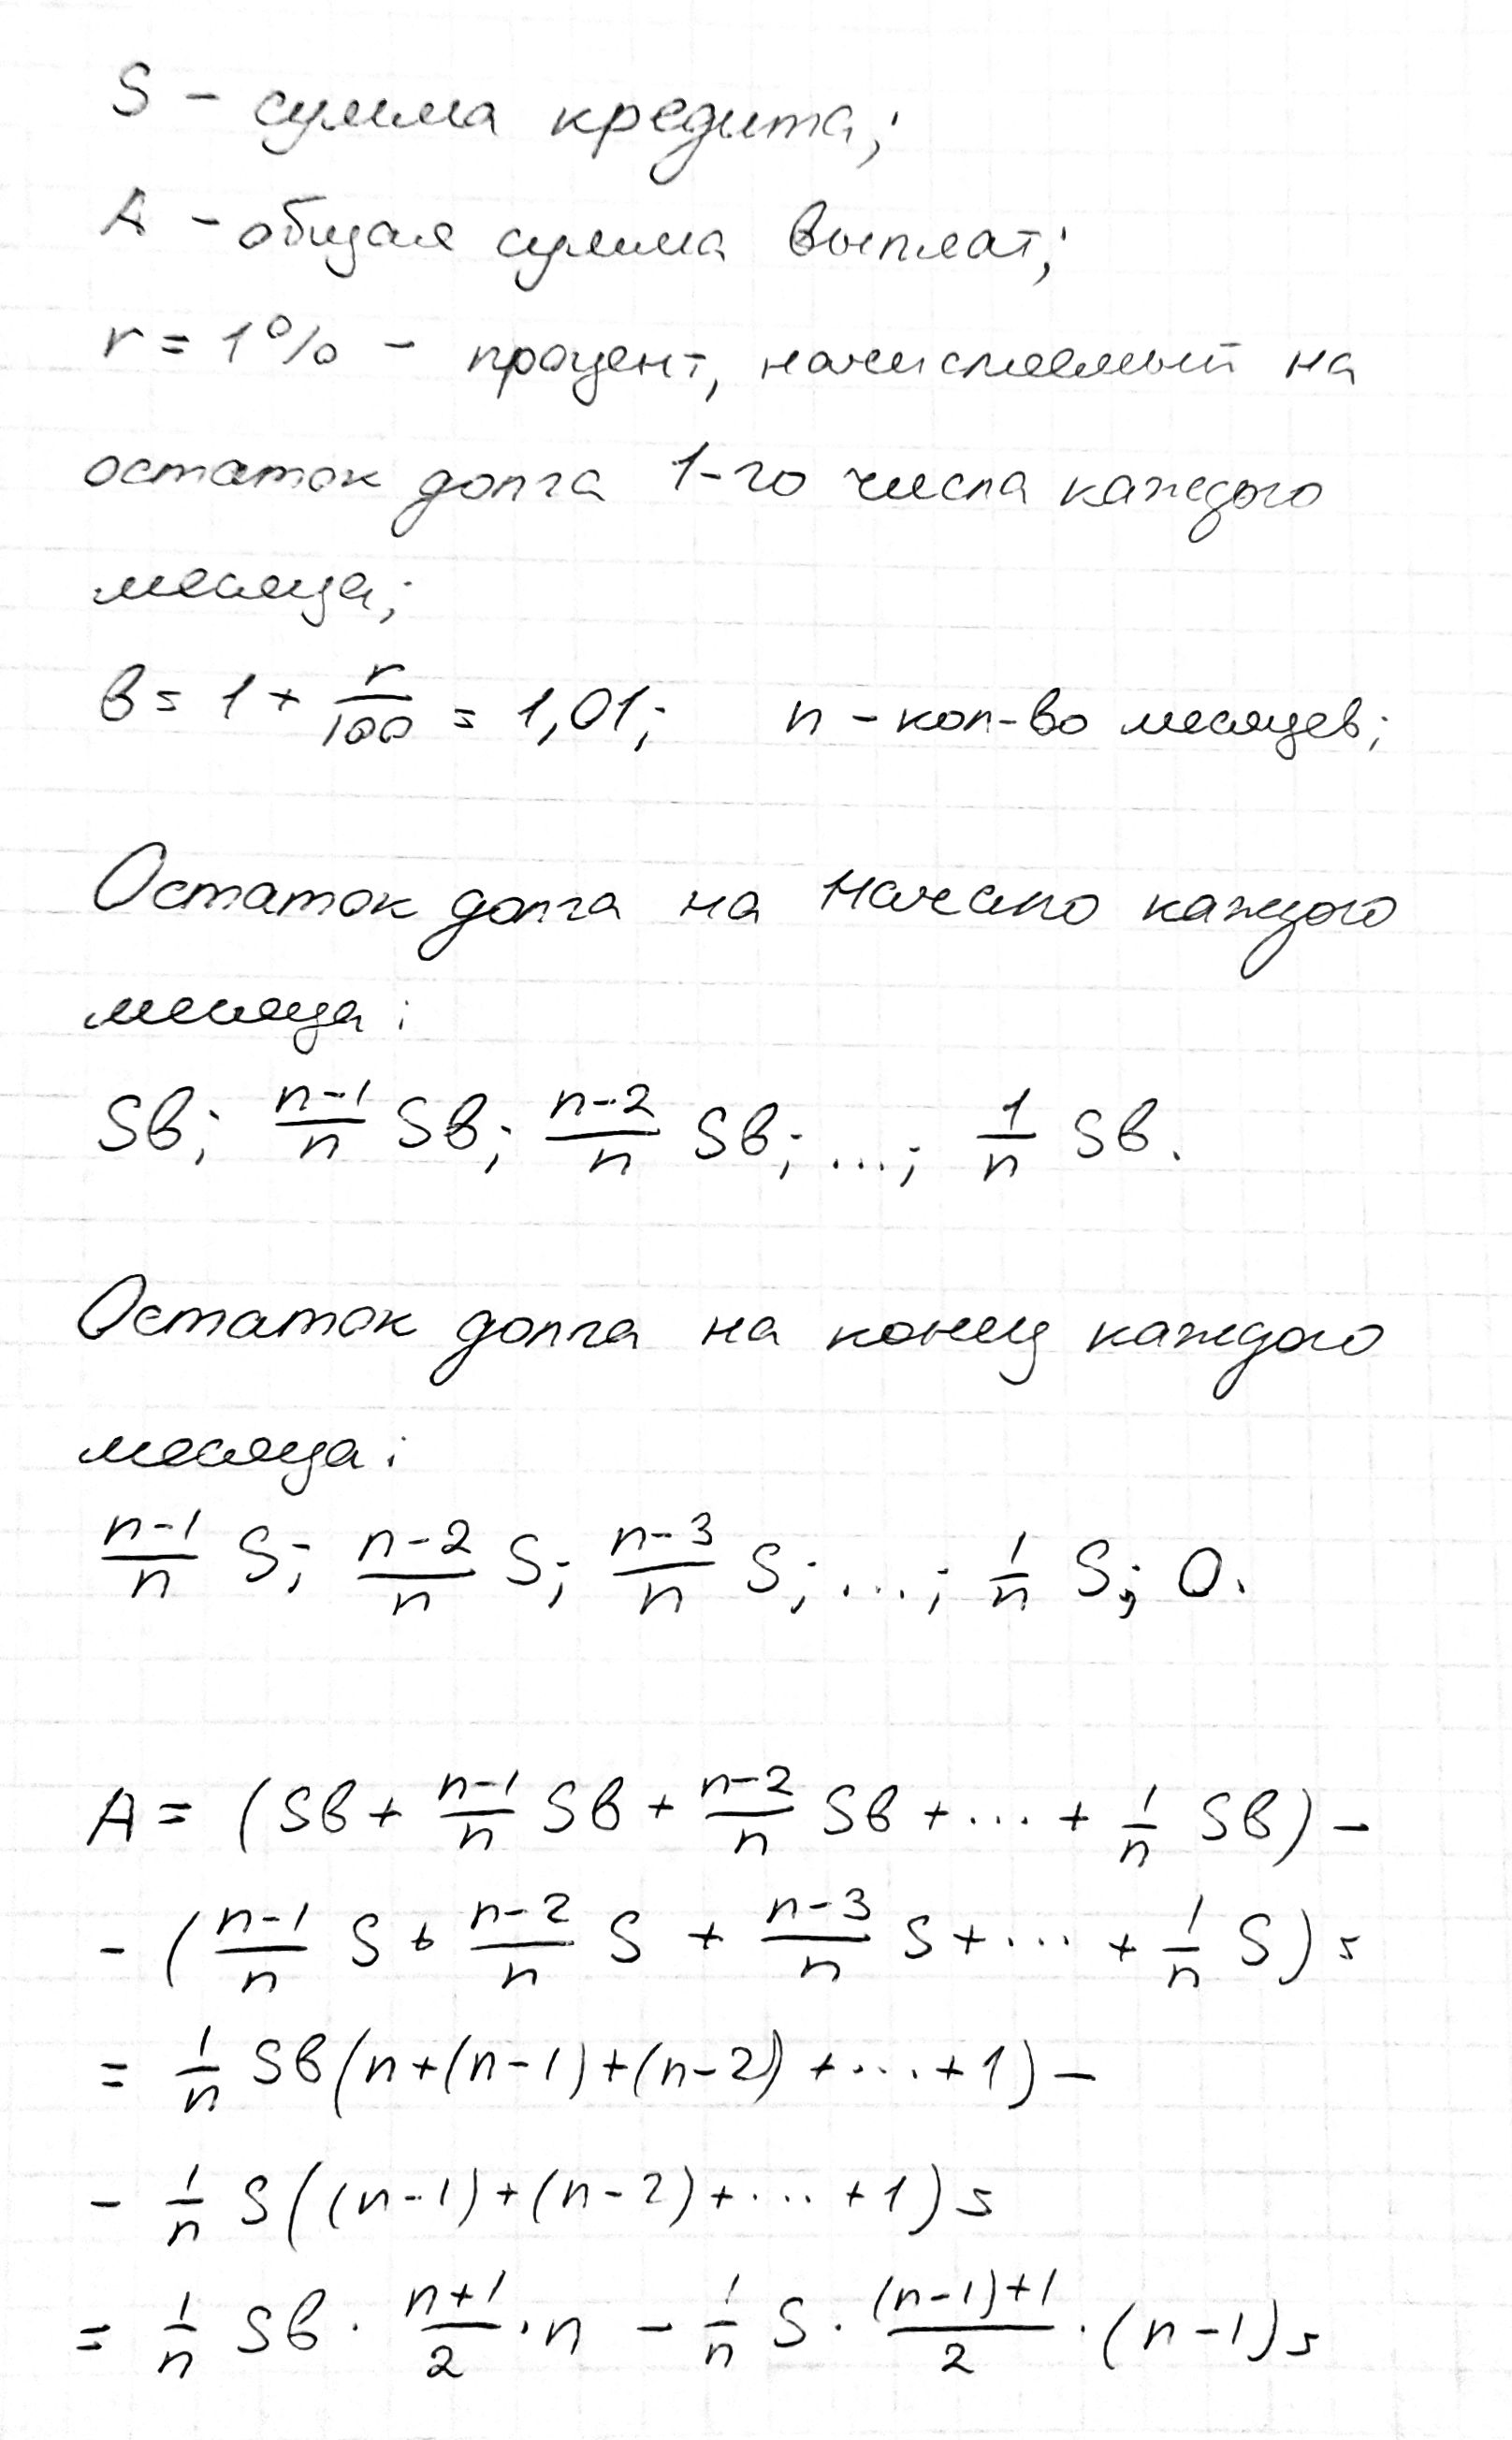 S – сумма кредита;
A – общая сумма выплат;
r = 1% – процент, начисляемый на
остаток долга 1-го числа каждого
месяца;
b = 1 + r/100 = 1,01; n – кол-во месяцев;
Остаток долга на начало каждого
месяца:
Sb; (n-1)/n Sb; (n-2)/n Sb; ...; 1/n Sb.
Остаток долга на конец каждого
месяца:
(n-1)/n S; (n-2)/n S; (n-3)/n S; ...; 1/n S; 0.
A = (Sb + (n-1)/n Sb + (n-2)/n Sb + ... + 1/n Sb) –
– ((n-1)/n S + (n-2)/n S + (n-3)/n S + ... + 1/n S) =
= 1/n Sb(n+(n-1)+(n-2) + ... + 1) –
– 1/n S((n-1)+(n-2)+ ... +1) =
= 1/n Sb · (n+1)/2 · n – 1/n S · ((n-1)+1)/2 · (n-1) =